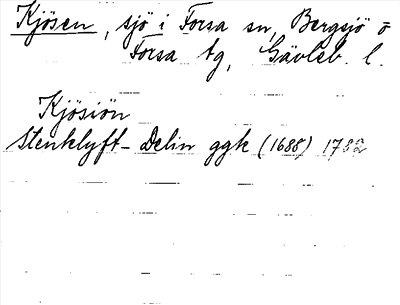 Kjösen, sjö i Forsa sn, Bergsjö o
Forsa tg, Gävleb. l.
Kjösiön
Stenklyft-Delin ggk (1688) 1782